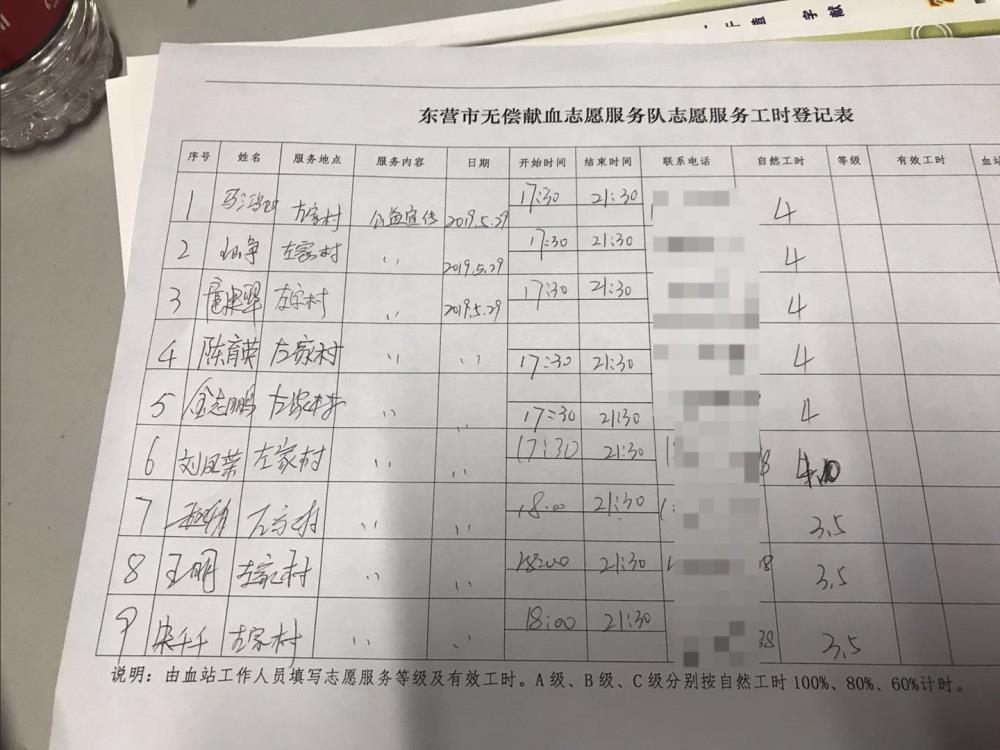 东营市无偿献血志愿服务队志愿服务工时登记表
序号 姓名 服务地点 服务内容 日期 开始时间 结束时间 联系电话 自然工时 等级 有效工时 血站
1 左家村 公益宣传 2019.5.29 17:30 21:30 4
2 左家村 〃 2019.5.29 17:30 21:30 4
3 左家村 〃 2019.5.29 17:30 21:30 4
4 陈育英 左家村 〃 〃 17:30 21:30 4
5 金志鹏 左家村 〃 〃 17:30 21:30 4
6 刘凤荣 左家村 〃 〃 17:30 21:30
7 左家村 〃 〃 18:00 21:30 3.5
8 王明 左家村 〃 〃 18:00 21:30 3.5
9 左家村 〃 〃 18:00 21:30 3.5
说明：由血站工作人员填写志愿服务等级及有效工时。A级、B级、C级分别按自然工时100%、80%、60%计时。